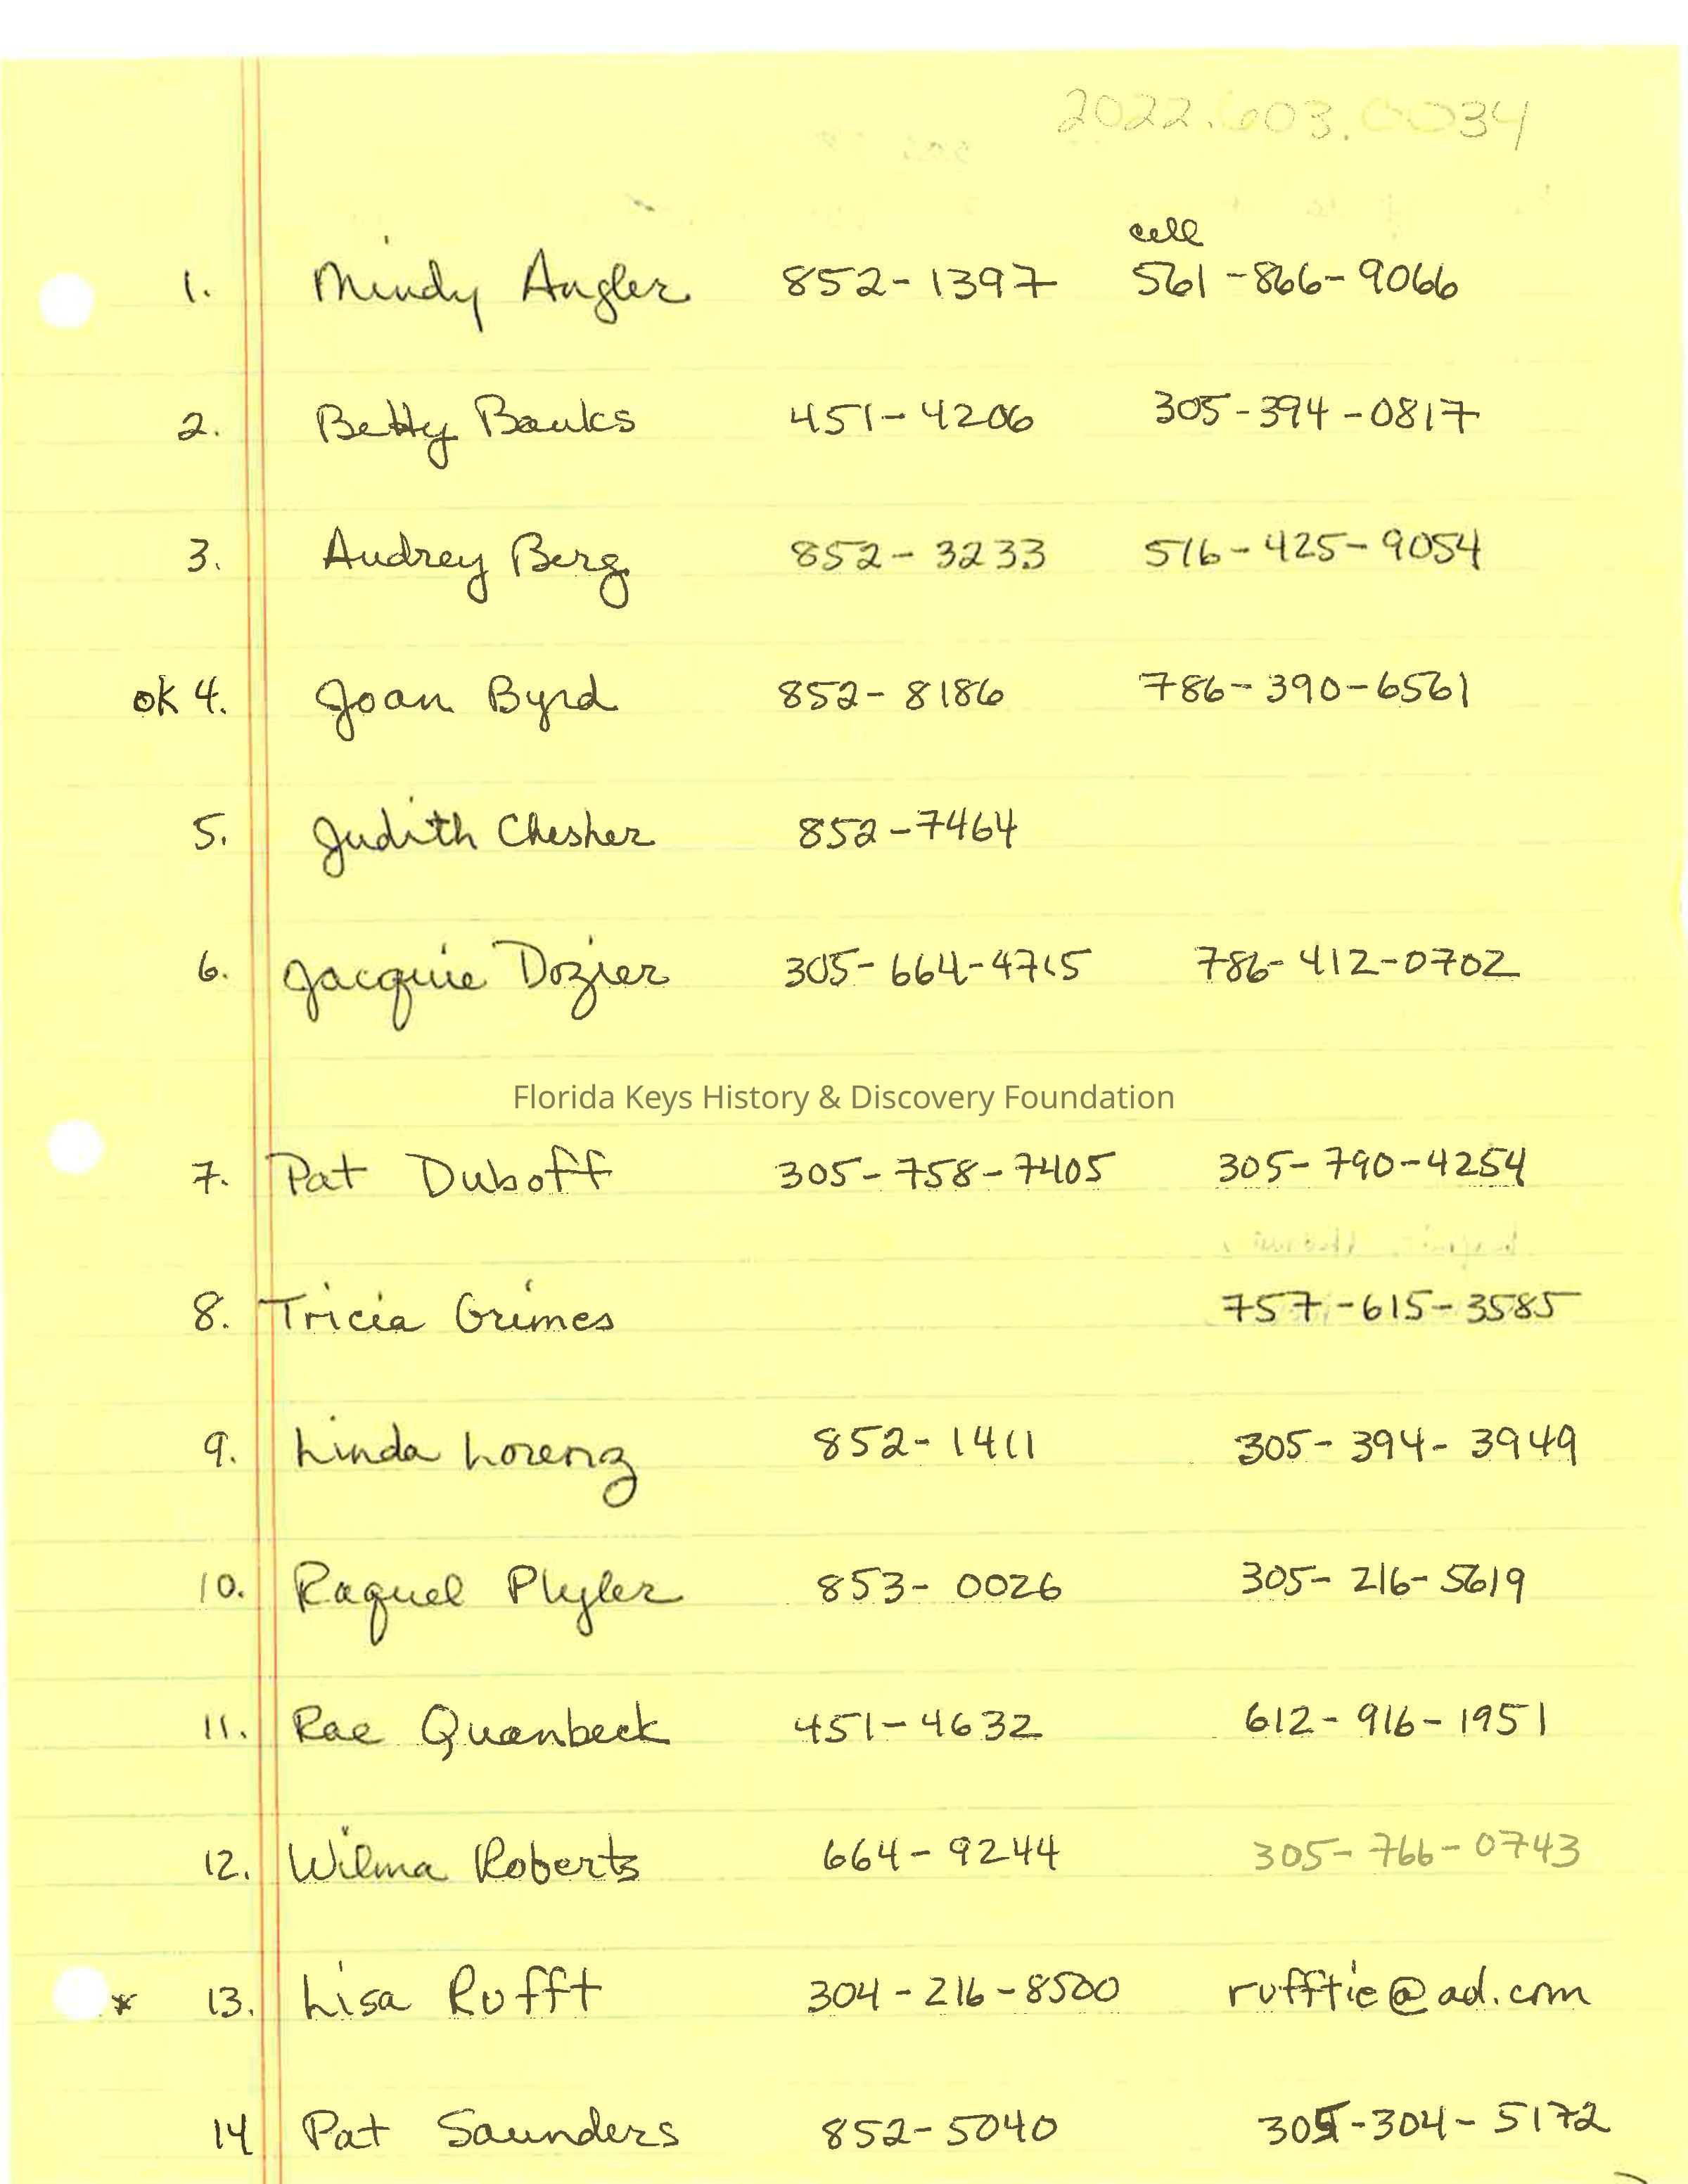 2022.603.0034
cell
1. Mindy Angler 852-1397 561-866-9066
2. Betty Banks 451-4206 305-394-0817
3. Audrey Berg 852-3233 516-425-9054
ok 4. Joan Byrd 852-8186 786-390-6561
5. Judith Chesher 852-7464
6. Jacquie Dozier 305-664-4715 786-412-0702
Florida Keys History & Discovery Foundation
7. Pat Duboff 305-758-7405 305-790-4254
8. Tricia Grimes 757-615-3585
9. Linda Lorenz 852-1411 305-394-3949
10. Raquel Plyler 853-0026 305-216-5619
11. Rae Quanbeck 451-4632 612-916-1951
12. Wilma Roberts 664-9244 305-766-0743
* 13. Lisa Rufft 304-216-8500 rufftie@ad.com
14 Pat Saunders 852-5040 305-304-5172